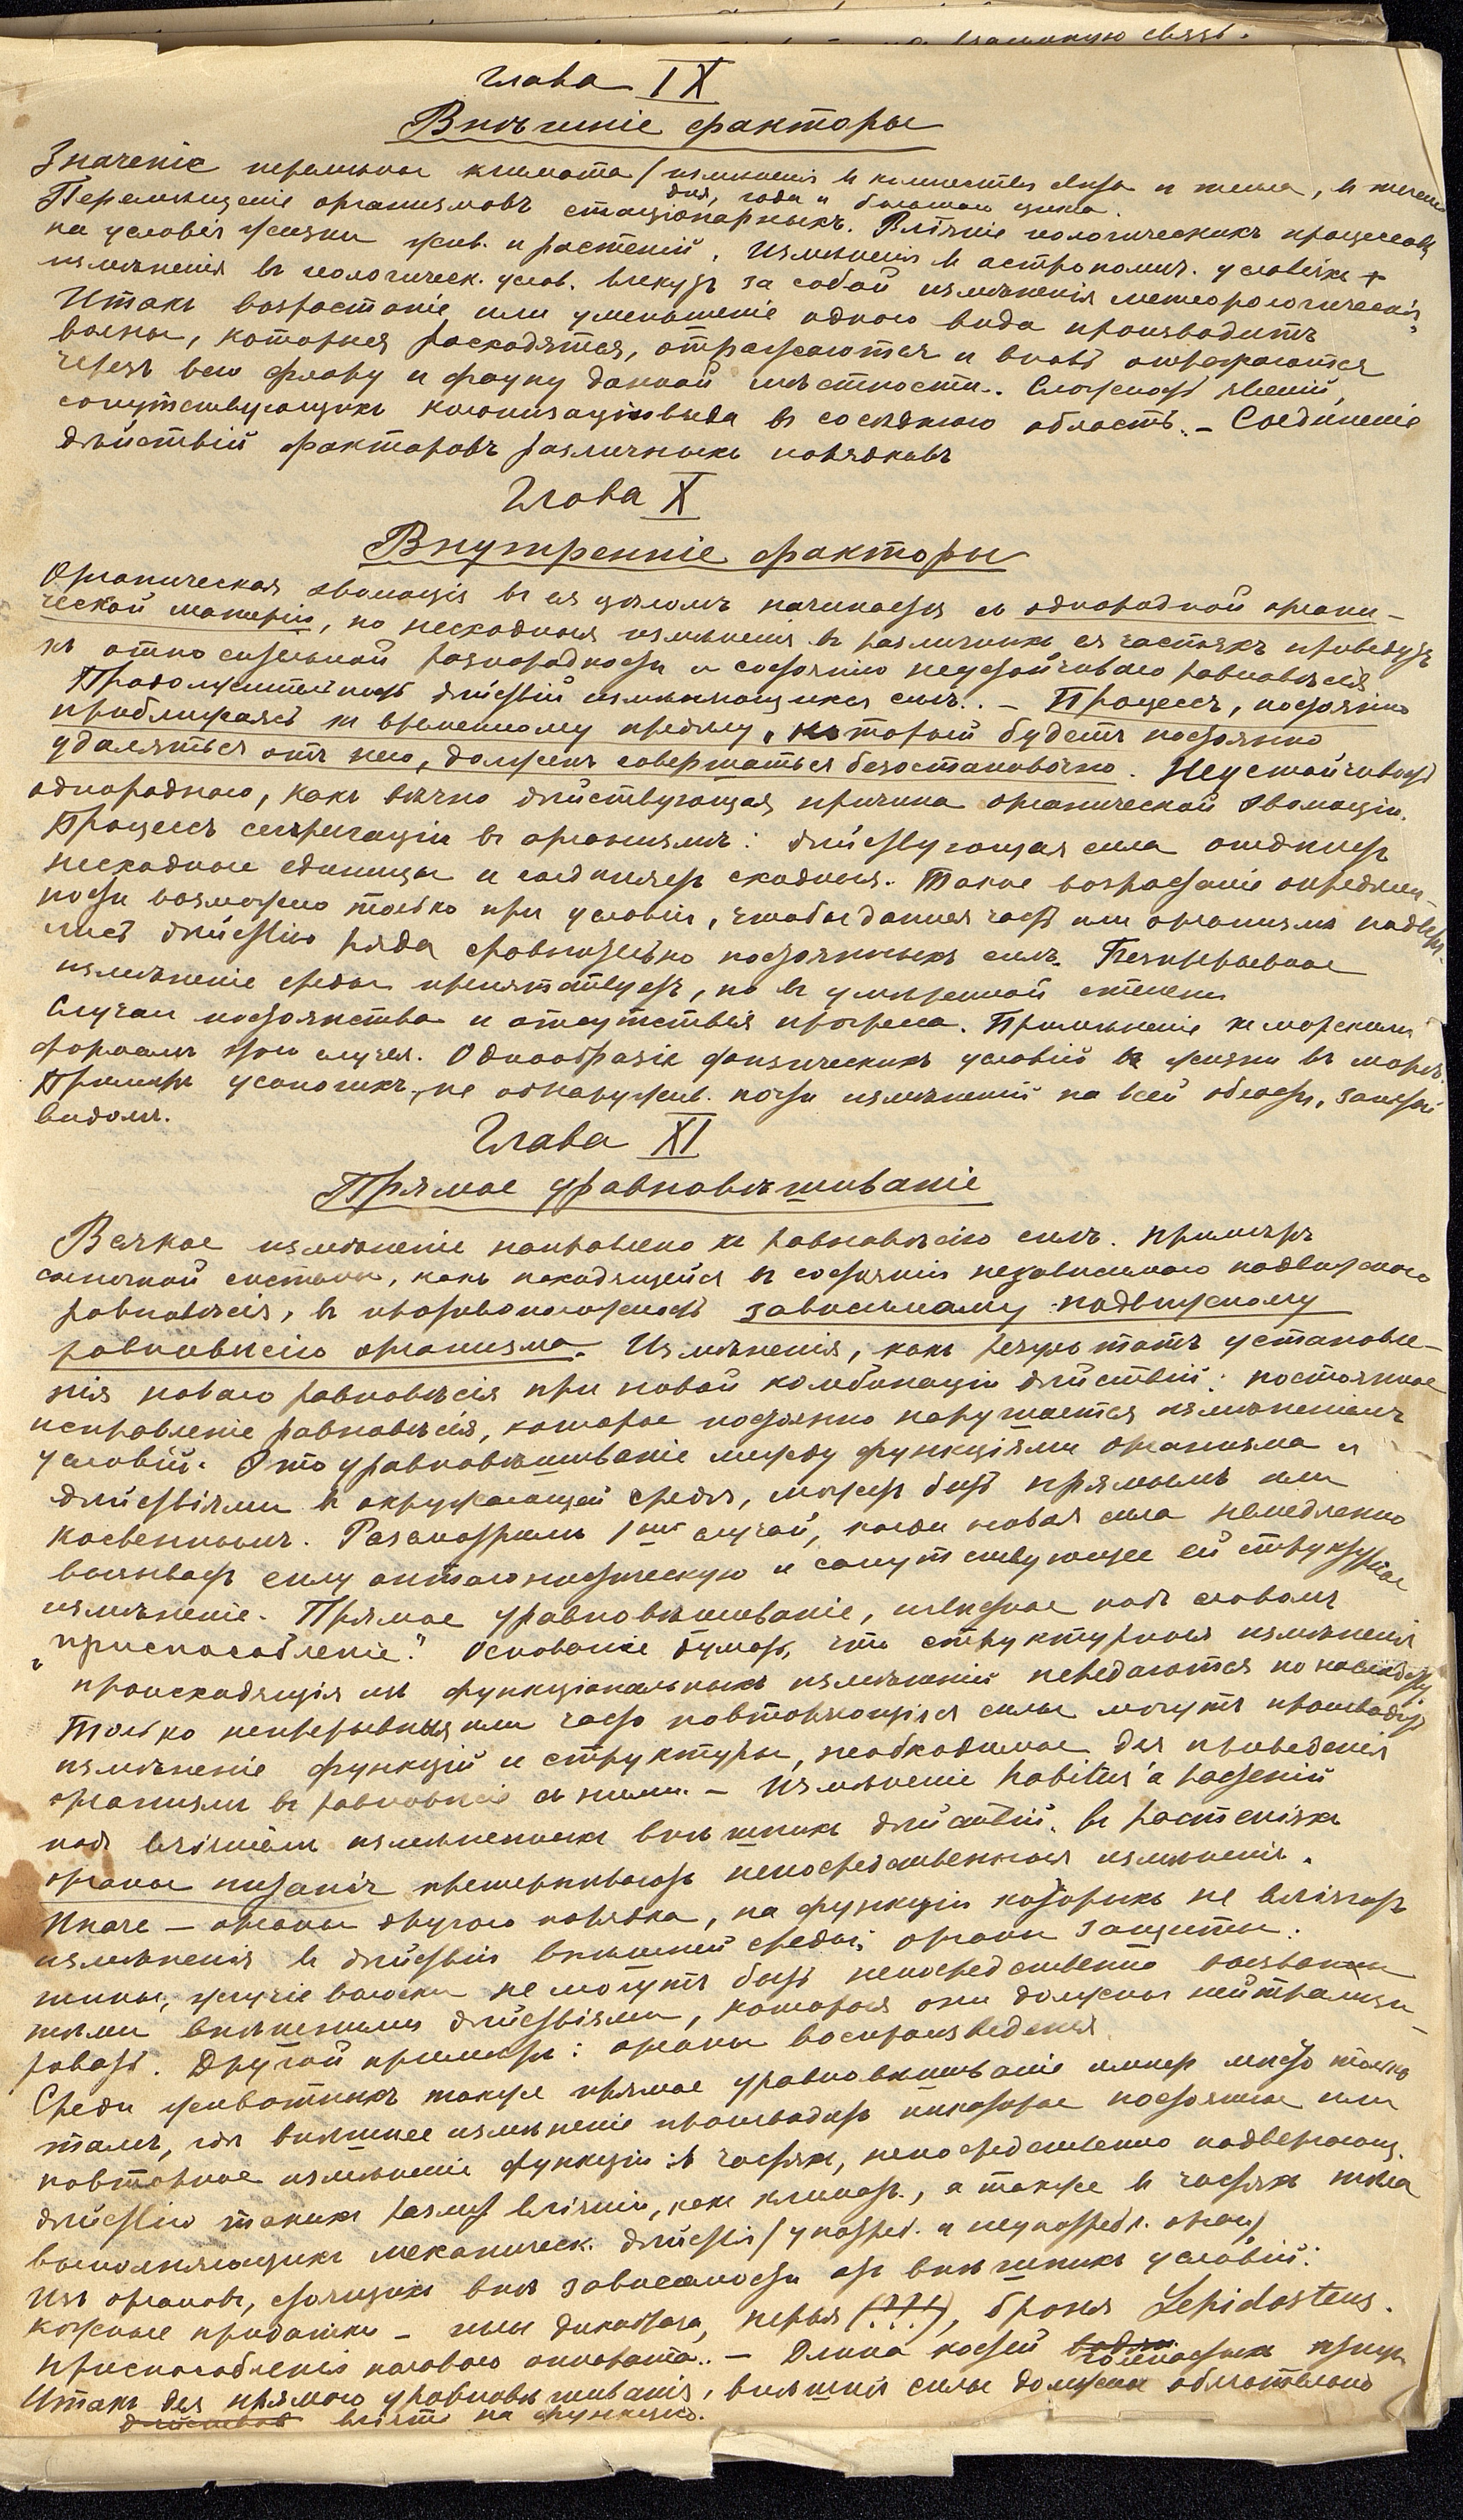 Глава IX
Внѣшніе факторы
Значеніе перемѣны климата / измѣненія в количествѣ свѣта и тепла, в теченіи
дня, года и большаго цикла.
Перемѣщеніе организмовъ стаціонарныхъ. Вліяніе геологическихъ процессовъ
на условія жизни жив. и растеній. Измѣненія в астрономич. условіях +
измѣненія въ геологическ. услов. влекутъ за собой измѣненія метеорологическія.
Итакъ возрастаніе или уменьшеніе одного вида производитъ
волны, которыя расходятся, отражаются и вновь отражаются
черезъ всю флору и фауну данной мѣстности. Сложность явленій,
сопутствующихъ колонизаціи вида въ сосѣднюю область. – Соединеніе
дѣйствій факторовъ различныхъ порядковъ
Глава X
Внутренніе факторы
Органическая эволюція въ ея цѣломъ начинается съ однородной органи-
ческой матеріи, но несходныя измѣненія въ различныхъ ея частяхъ приведутъ
къ относительной разнородности и состоянію неустойчиваго равновѣсія
Продолжительность дѣйствій измѣняющихся силъ. – Процессъ, постоянно
приближаясь къ временному предѣлу, который будетъ постоянно
удаляться отъ него, долженъ совершаться безостановочно. Неустойчивость
однороднаго, какъ вѣчно дѣйствующая причина органической эволюціи.
Процессъ сегрегаціи въ организмѣ: дѣйствующая сила отдѣляетъ
несходныя единицы и соединяетъ сходныя. Такое возрастаніе опредѣлен-
ности возможно только при условіи, чтобы данная часть или организмъ подверга-
лись дѣйствію ряда сравнительно постоянныхъ силъ. Безпрерывное
измѣненіе среды препятствуетъ, но въ умѣренной степени
Случаи постоянства и отсутствія прогресса. Примѣненіе къ морскимъ
формамъ этого случая. Однообразіе физическихъ условій жизни въ морѣ.
Примѣръ усоногихъ, не обнаружив. почти измѣненій на всей области, занятой
видомъ.
Глава XI
Прямое уравновѣшиваніе
Всякое измѣненіе направлено къ равновѣсію силъ. Примѣръ
солнечной системы, какъ находящейся въ состояніи независимаго подвижнаго
равновѣсія, въ противоположность зависимому подвижному
равновѣсію организма. Измѣненія, какъ результатъ установле-
нія новаго равновѣсія при новой комбинаціи дѣйствій: постоянное
исправленіе равновѣсія, которое постоянно нарушается измѣненіемъ
условій. Это уравновѣшиваніе между функціями организма и
дѣйствіями в окружающей средѣ, можетъ быть прямымъ или
косвеннымъ. Разсмотримъ 1ый случай, когда новая сила немедленно
вызываетъ силу антагонистическую и сопутствующее ей структурное
измѣненіе. Прямое уравновѣшиваніе, извѣстное подъ словомъ
„приспособленіе". Основаніе думать, что структурныя измѣненія
происходящія изъ функціональныхъ измѣненій передаются по наслѣдству
Только непрерывныя или часто повторяющіяся силы могутъ произвести
измѣненіе функцій и структуры, необходимое для приведенія
организма въ равновѣсіе съ ними. – Измѣненіе habitus'а растеній
подъ вліяніемъ измѣненныхъ внѣшнихъ дѣйствій. В растеніяхъ
органы питанія претерпѣваютъ непосредственныя измѣненія.
Иначе – органы другого порядка, на функціи которыхъ не вліяютъ
измѣненія в дѣйствіи внѣшней среды; органы защиты:
шипы, жгучіе волоски не могутъ быть непосредственно вызваны
тѣми внѣшними дѣйствіями, которыя они должны нейтрализи-
ровать. Другой примѣръ: органы воспроизведенія
Среди животныхъ также прямое уравновѣшиваніе имѣетъ мѣсто только
тамъ, гдѣ внѣшнее измѣненіе производитъ нѣкоторое постоянное или
повторное измѣненіе функціи: въ частяхъ, непосредственно подвергающ.
дѣйствію такихъ вліяній, какъ климат., а также в частяхъ тѣла
выполняющихъ механическ. дѣйствія
Изъ органовъ, стоящихъ внѣ зависимости отъ внѣшнихъ условій:
кожные придатки – иглы дикобраза, перья (???), броня Lepidosteus.
приспособленія полового аппарата. – Длина костей голенастыхъ птицъ
Итакъ для прямого уравновѣшиванія, внѣшнія силы должны обязательно
дѣйствовать вліять на функцію.